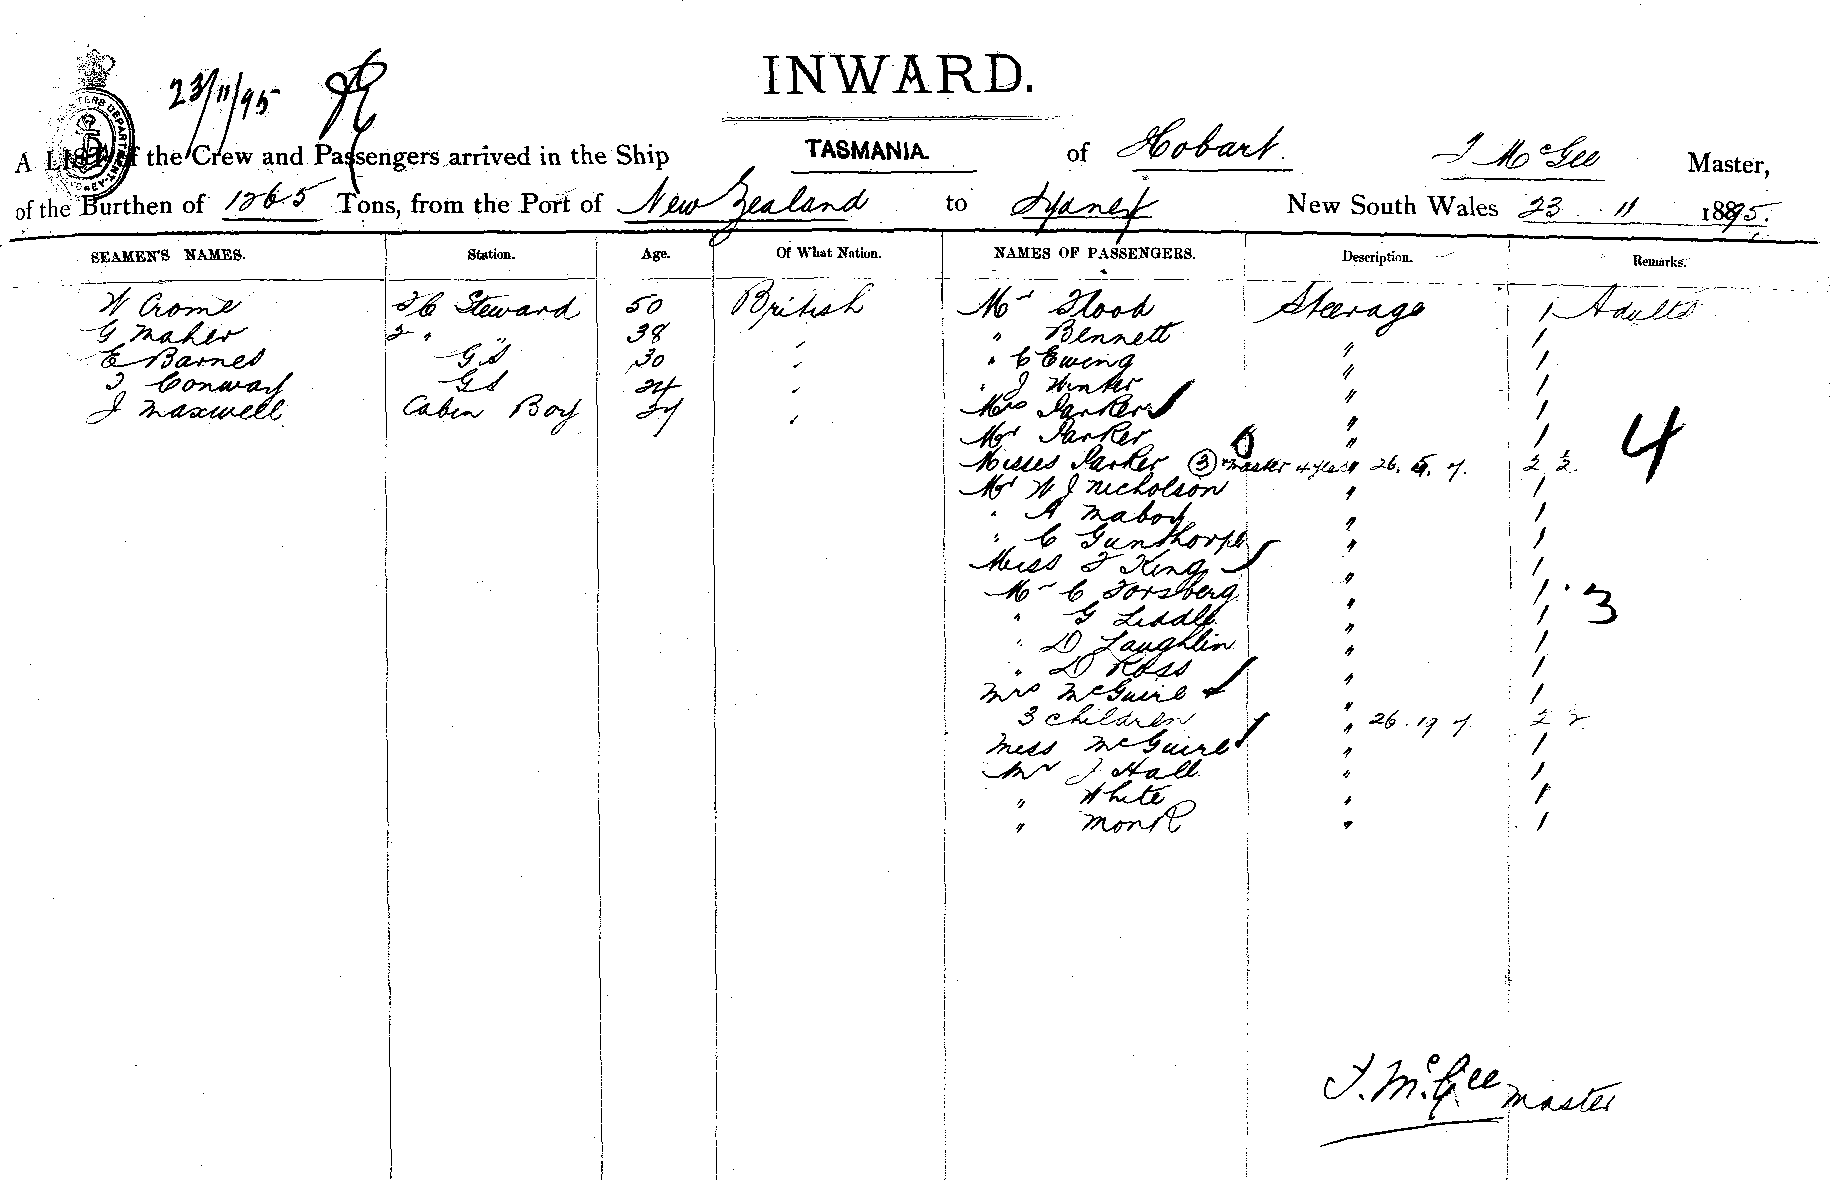 INWARD.
23/11/95
A LIST of the Crew and Passengers arrived in the Ship TASMANIA of Hobart. McGee Master,
of the Burthen of 1265 Tons, from the Port of New Zealand to Sydney New South Wales 23 11 1895.
SEAMEN'S NAMES. Station. Age. Of What Nation. NAMES OF PASSENGERS. Description. Remarks.
W Crome FC Steward 50 British Mr Flood Steerage 1 Adults
G Maher 2 " " 38 " " Bennett " 1
E Barnes GS 30 " " C Ewing " 1
Conway GS 24 " " J Winter " 1
J Maxwell Cabin Boy " Mrs Parker " 1
Mr Parker " 1 4
Misses Parker (3) Master 4 yrs " 26. 7. 2 2
Mr W J Nicholson " 1
" A Maboy " 1
" C Gunthorpe " 1
Miss F King " 1
Mr C Forsberg " 1 3
" G Liddle " 1
" D Laughlin " 1
" D Ross " 1
Mrs McGuire " 1
3 children " 26. 19 7. 2 2
Miss McGuire " 1
Mr J Hall " 1
" White " 1
" Monk " 1
McGee Master